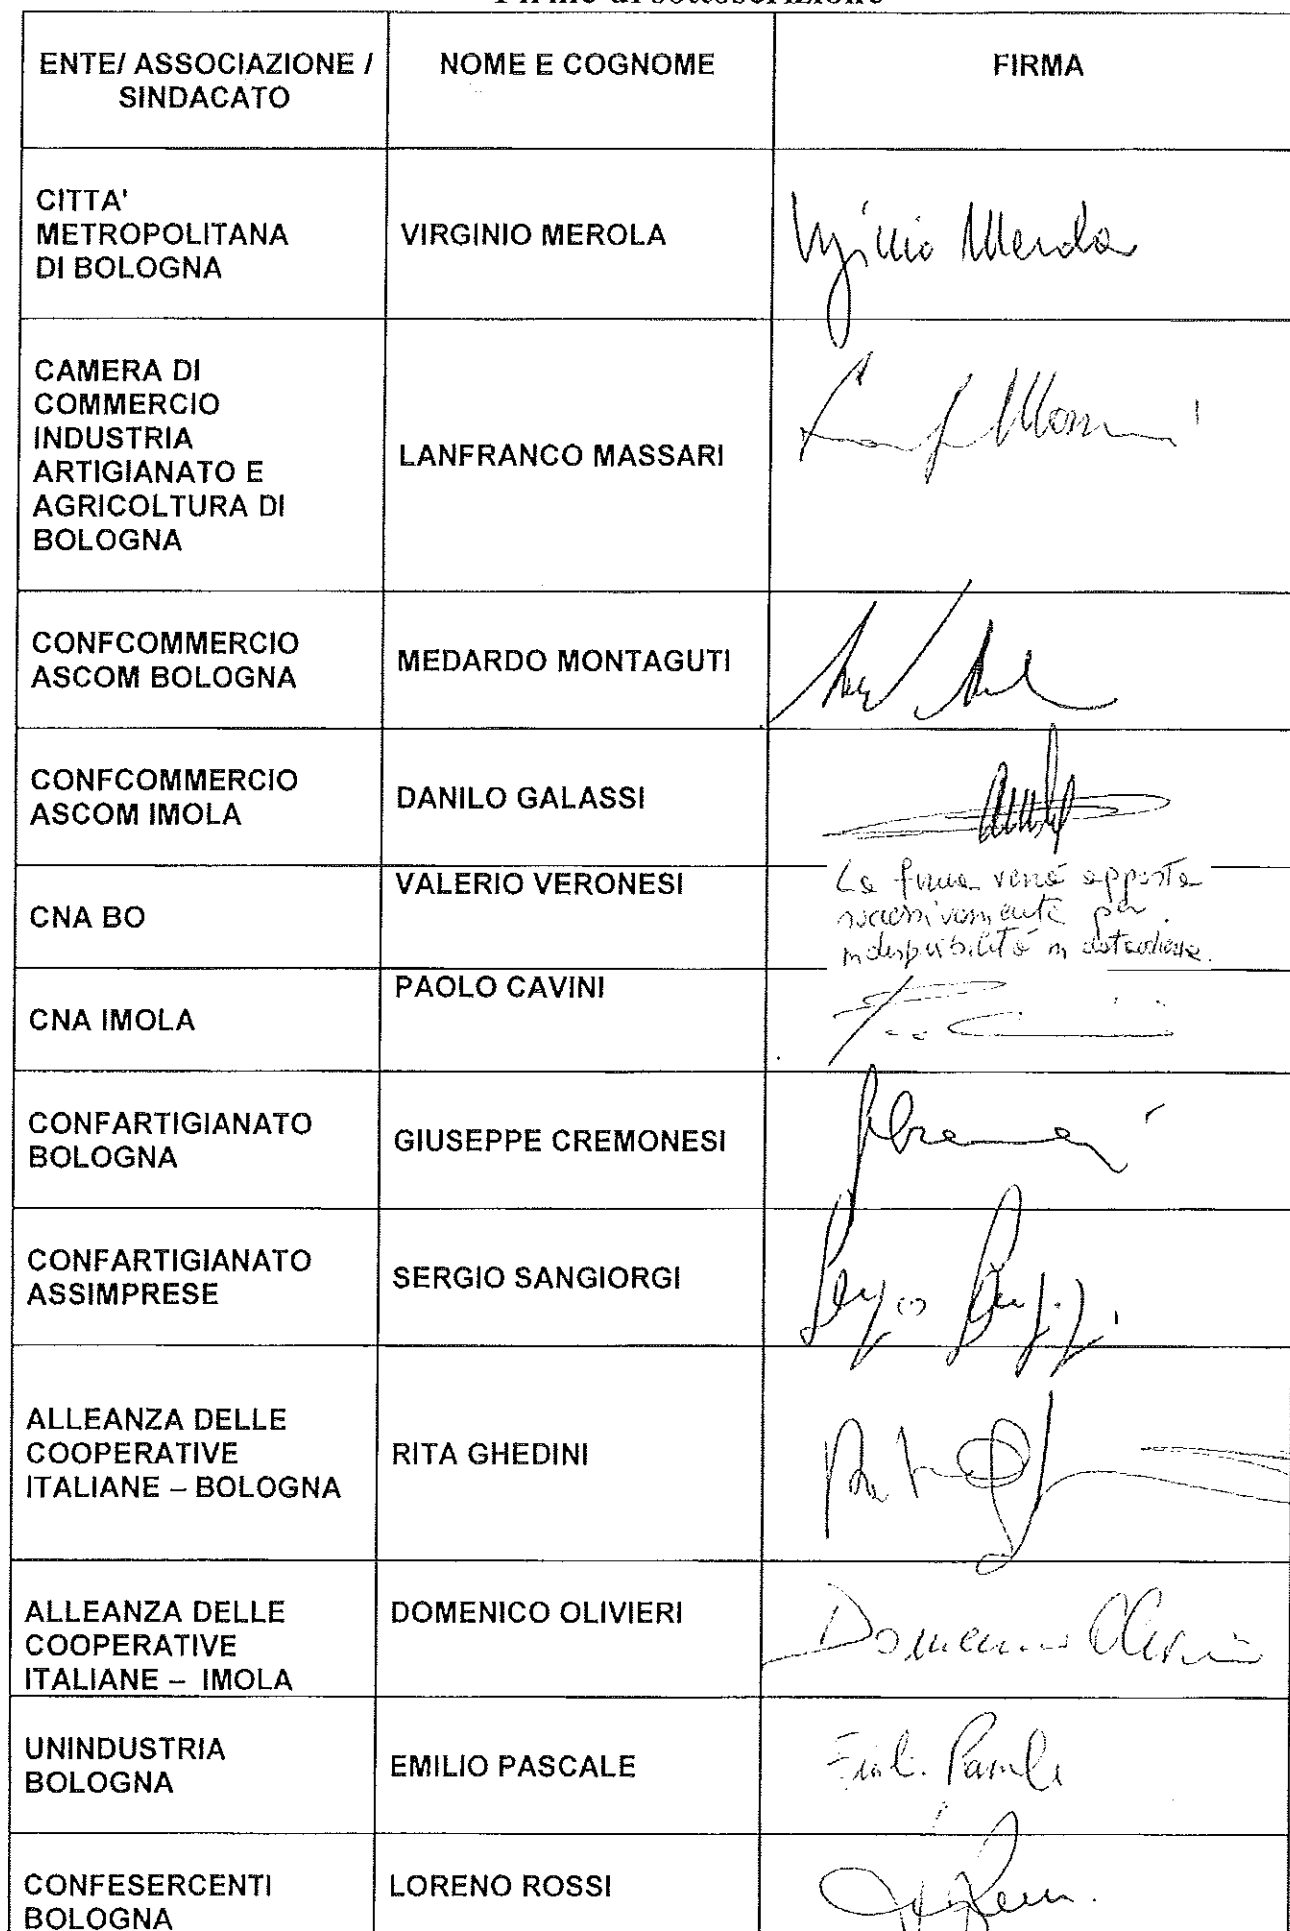 Firme di sottoscrizione
ENTE/ ASSOCIAZIONE /
SINDACATO
NOME E COGNOME
FIRMA
CITTA'
METROPOLITANA
DI BOLOGNA
VIRGINIO MEROLA
Virginio Merola
CAMERA DI
COMMERCIO
INDUSTRIA
ARTIGIANATO E
AGRICOLTURA DI
BOLOGNA
LANFRANCO MASSARI
CONFCOMMERCIO
ASCOM BOLOGNA
MEDARDO MONTAGUTI
CONFCOMMERCIO
ASCOM IMOLA
DANILO GALASSI
CNA BO
VALERIO VERONESI
La firma verrà apposta
successivamente per
indisponibilità in data odierna.
CNA IMOLA
PAOLO CAVINI
CONFARTIGIANATO
BOLOGNA
GIUSEPPE CREMONESI
CONFARTIGIANATO
ASSIMPRESE
SERGIO SANGIORGI
ALLEANZA DELLE
COOPERATIVE
ITALIANE – BOLOGNA
RITA GHEDINI
ALLEANZA DELLE
COOPERATIVE
ITALIANE – IMOLA
DOMENICO OLIVIERI
Domenico Olivieri
UNINDUSTRIA
BOLOGNA
EMILIO PASCALE
Emilio Pascale
CONFESERCENTI
BOLOGNA
LORENO ROSSI